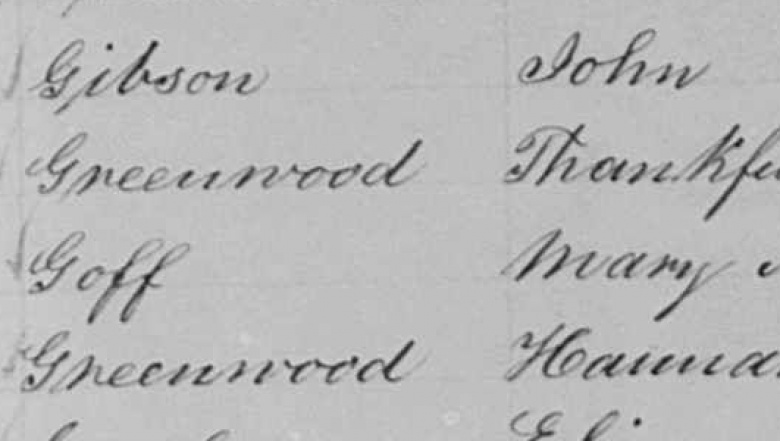 Gibson John
Greenwood Thankfu
Goff Mary
Greenwood Hanna